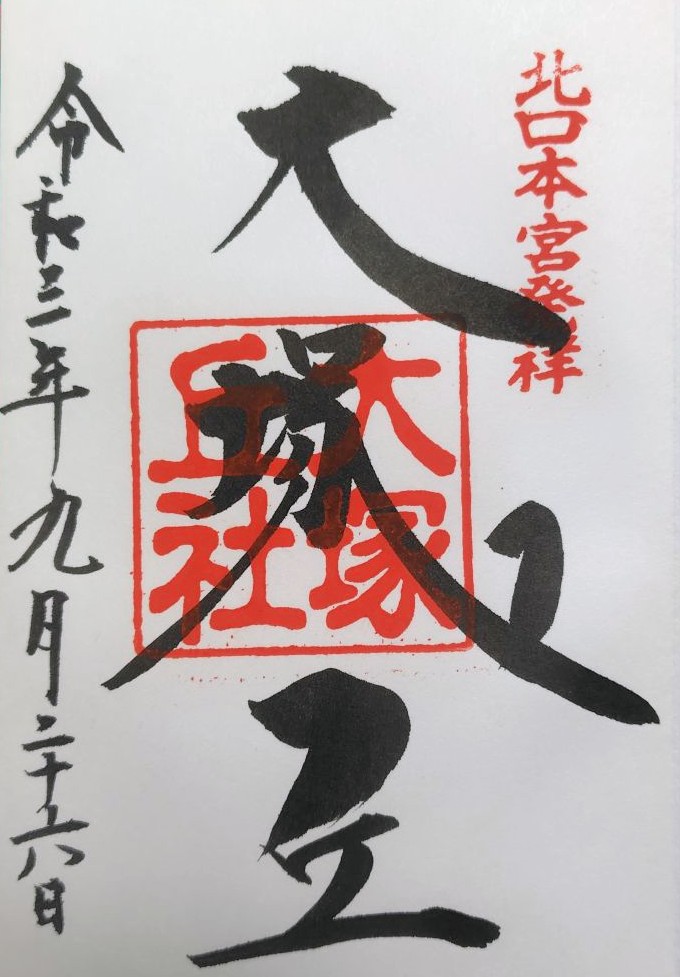 北口本宮発祥
大塚丘
大塚
丘社
令和三年九月二十六日